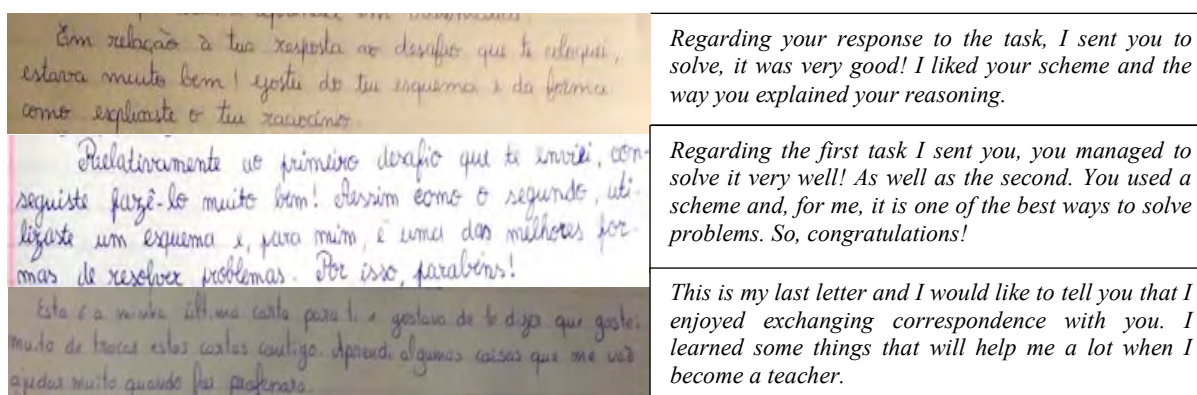 Em relação à tua resposta ao desafio que te coloquei,
estava muito bem! gostei do teu esquema e da forma
como explicaste o teu raciocínio.
Regarding your response to the task, I sent you to
solve, it was very good! I liked your scheme and the
way you explained your reasoning.
Relativamente ao primeiro desafio que te enviei, con-
seguiste fazê-lo muito bem! Assim como o segundo, uti-
lizaste um esquema e, para mim, é uma das melhores for-
mas de resolver problemas. Por isso, parabéns!
Regarding the first task I sent you, you managed to
solve it very well! As well as the second. You used a
scheme and, for me, it is one of the best ways to solve
problems. So, congratulations!
Esta é a minha última carta para ti e gostava de te dizer que gostei
muito de trocar estas cartas contigo. Aprendi algumas coisas que me vão
ajudar muito quando for professora.
This is my last letter and I would like to tell you that I
enjoyed exchanging correspondence with you. I
learned some things that will help me a lot when I
become a teacher.